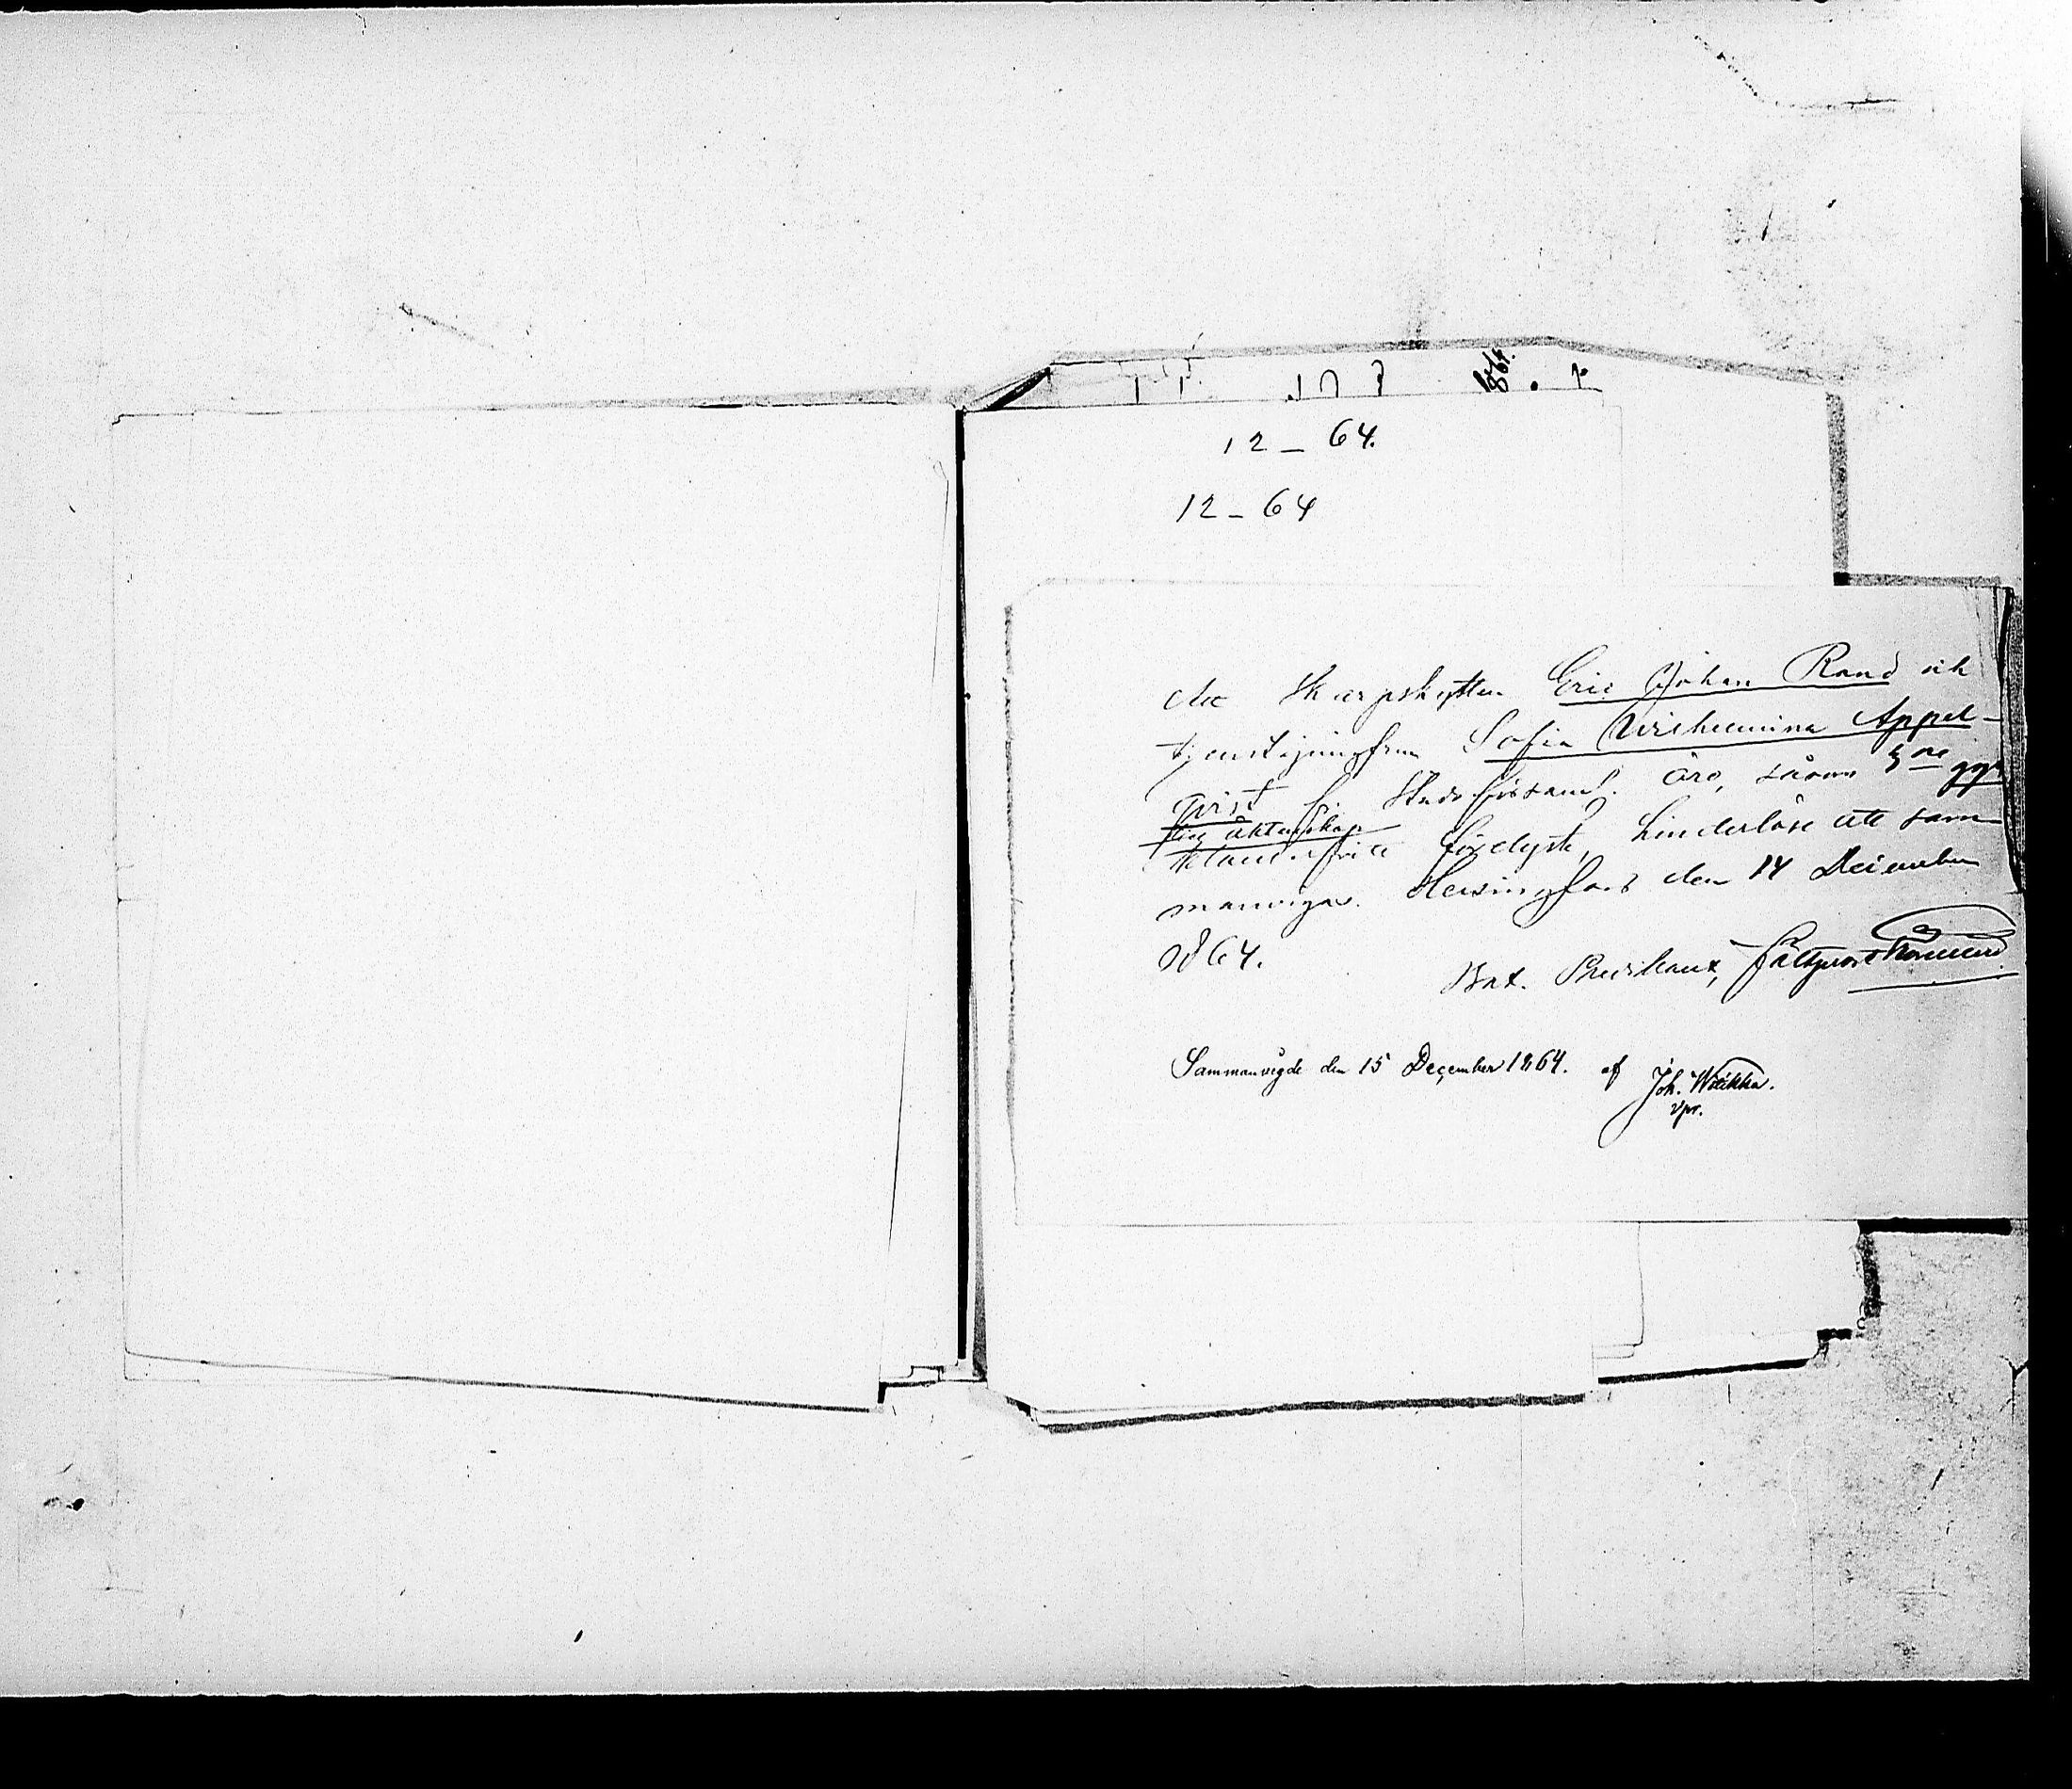 12 – 64.
12 – 64
Att Skarpskytten Eric Johan Rand och
tjenstejungfrun Sofia Wilhelmina Appel-
qvist fr. Stadsförsaml. äro, såsom 3ne ggr
till äktenskap
klanderfritt förelyste, hinderlöse att sam-
manvigas. Helsingfors den 14 December
1864.
Bat. Predikant,
Sammanvigde den 15 December 1864. af Joh. Woikka.
vpr.